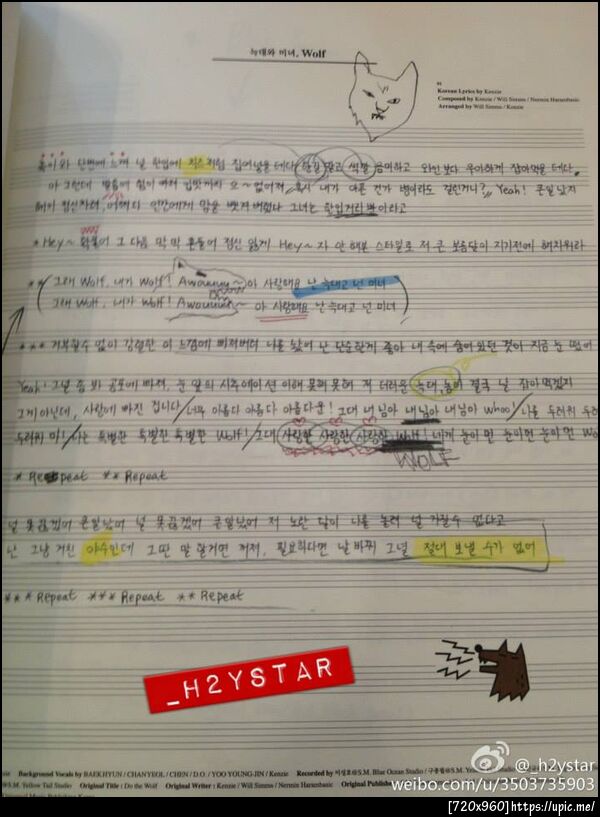 늑대와 미녀, Wolf
01
Korean Lyrics by Kenzie
Composed by Kenzie / Will Simms / Nermin Harambasic
Arranged by Will Simms / Kenzie
촉이 와 단번에 느껴 널 한입에 치즈처럼 집어넣을 테다 향길 맡고 색깔 음미하고 와인보다 우아하게 잡아먹을 테다
아 그런데 발톱에 힘이 빠져 입맛까지 요~ 없어져 혹시 내가 아픈 건가 병이라도 걸린거니? Yeah! 큰일 났지
헤이 정신차려, 어쩌다 인간에게 맘을 뺏겨버렸나 그녀는 한입거리 뿐이라고
* Hey~ 확물어 그 다음 막 막 흔들어 정신 잃게 Hey~ 자 안 해본 스타일로 저 큰 보름달이 지기전에 해치워라
** 그래 Wolf, 내가 Wolf! Awouuuu~ 아 사랑해요 난 늑대고 넌 미녀
그래 Wolf, 내가 Wolf! Awouuuu~ 아 사랑해요 난 늑대고 넌 미녀
*** 거부할수 없이 강렬한 이 느낌에 빠져버려 나를 놨어 난 단순한게 좋아 내 속에 숨어 왔던 것이 지금 눈 떴어
Yeah! 그녈 좀 봐 공포에 빠져, 눈 앞의 시추에이션 이해 못해 못해 저 더러운 늑대,
그게 아닌데, 사랑에 빠진 겁니다/너무 아름다 아름다 아름다운! 그대 내 님아 내님아 내님아 whoo/나를 두려워 두려
두려워 마!/나는 특별한 특별한 특별한 Wolf!/그대 사랑한 사랑한 사랑한 Wolf!
WOLF
* Repeat ** Repeat
널 못끊겠어 큰일났어 널 못끊겠어 큰일났어 저 노란 달이 나를 놀려 널 가질수 없다고
난 그냥 거친 야수인데 그딴 말 할거면 꺼져, 필요하다면 날 바꿔 그녈 절대 보낼 수가 없어
*** Repeat *** Repeat ** Repeat
_H2YSTAR
Background Vocals by BAEKHYUN / CHANYEOL / CHEN / D.O. / YOO YOUNG-JIN / Kenzie Recorded by 이성호@S.M. Blue Ocean Studio / 구종필@S.M. Yellow
S.M. Yellow Tail Studio Original Title : Do the Wolf Original Writer : Kenzie / Will Simms / Nermin Harambasic Original Publisher
@_h2ystar
weibo.com/u/3503735903
[720x960]https://upic.me/